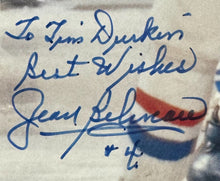 To Tim Durkin
Best Wishes
Jean Beliveau
#4